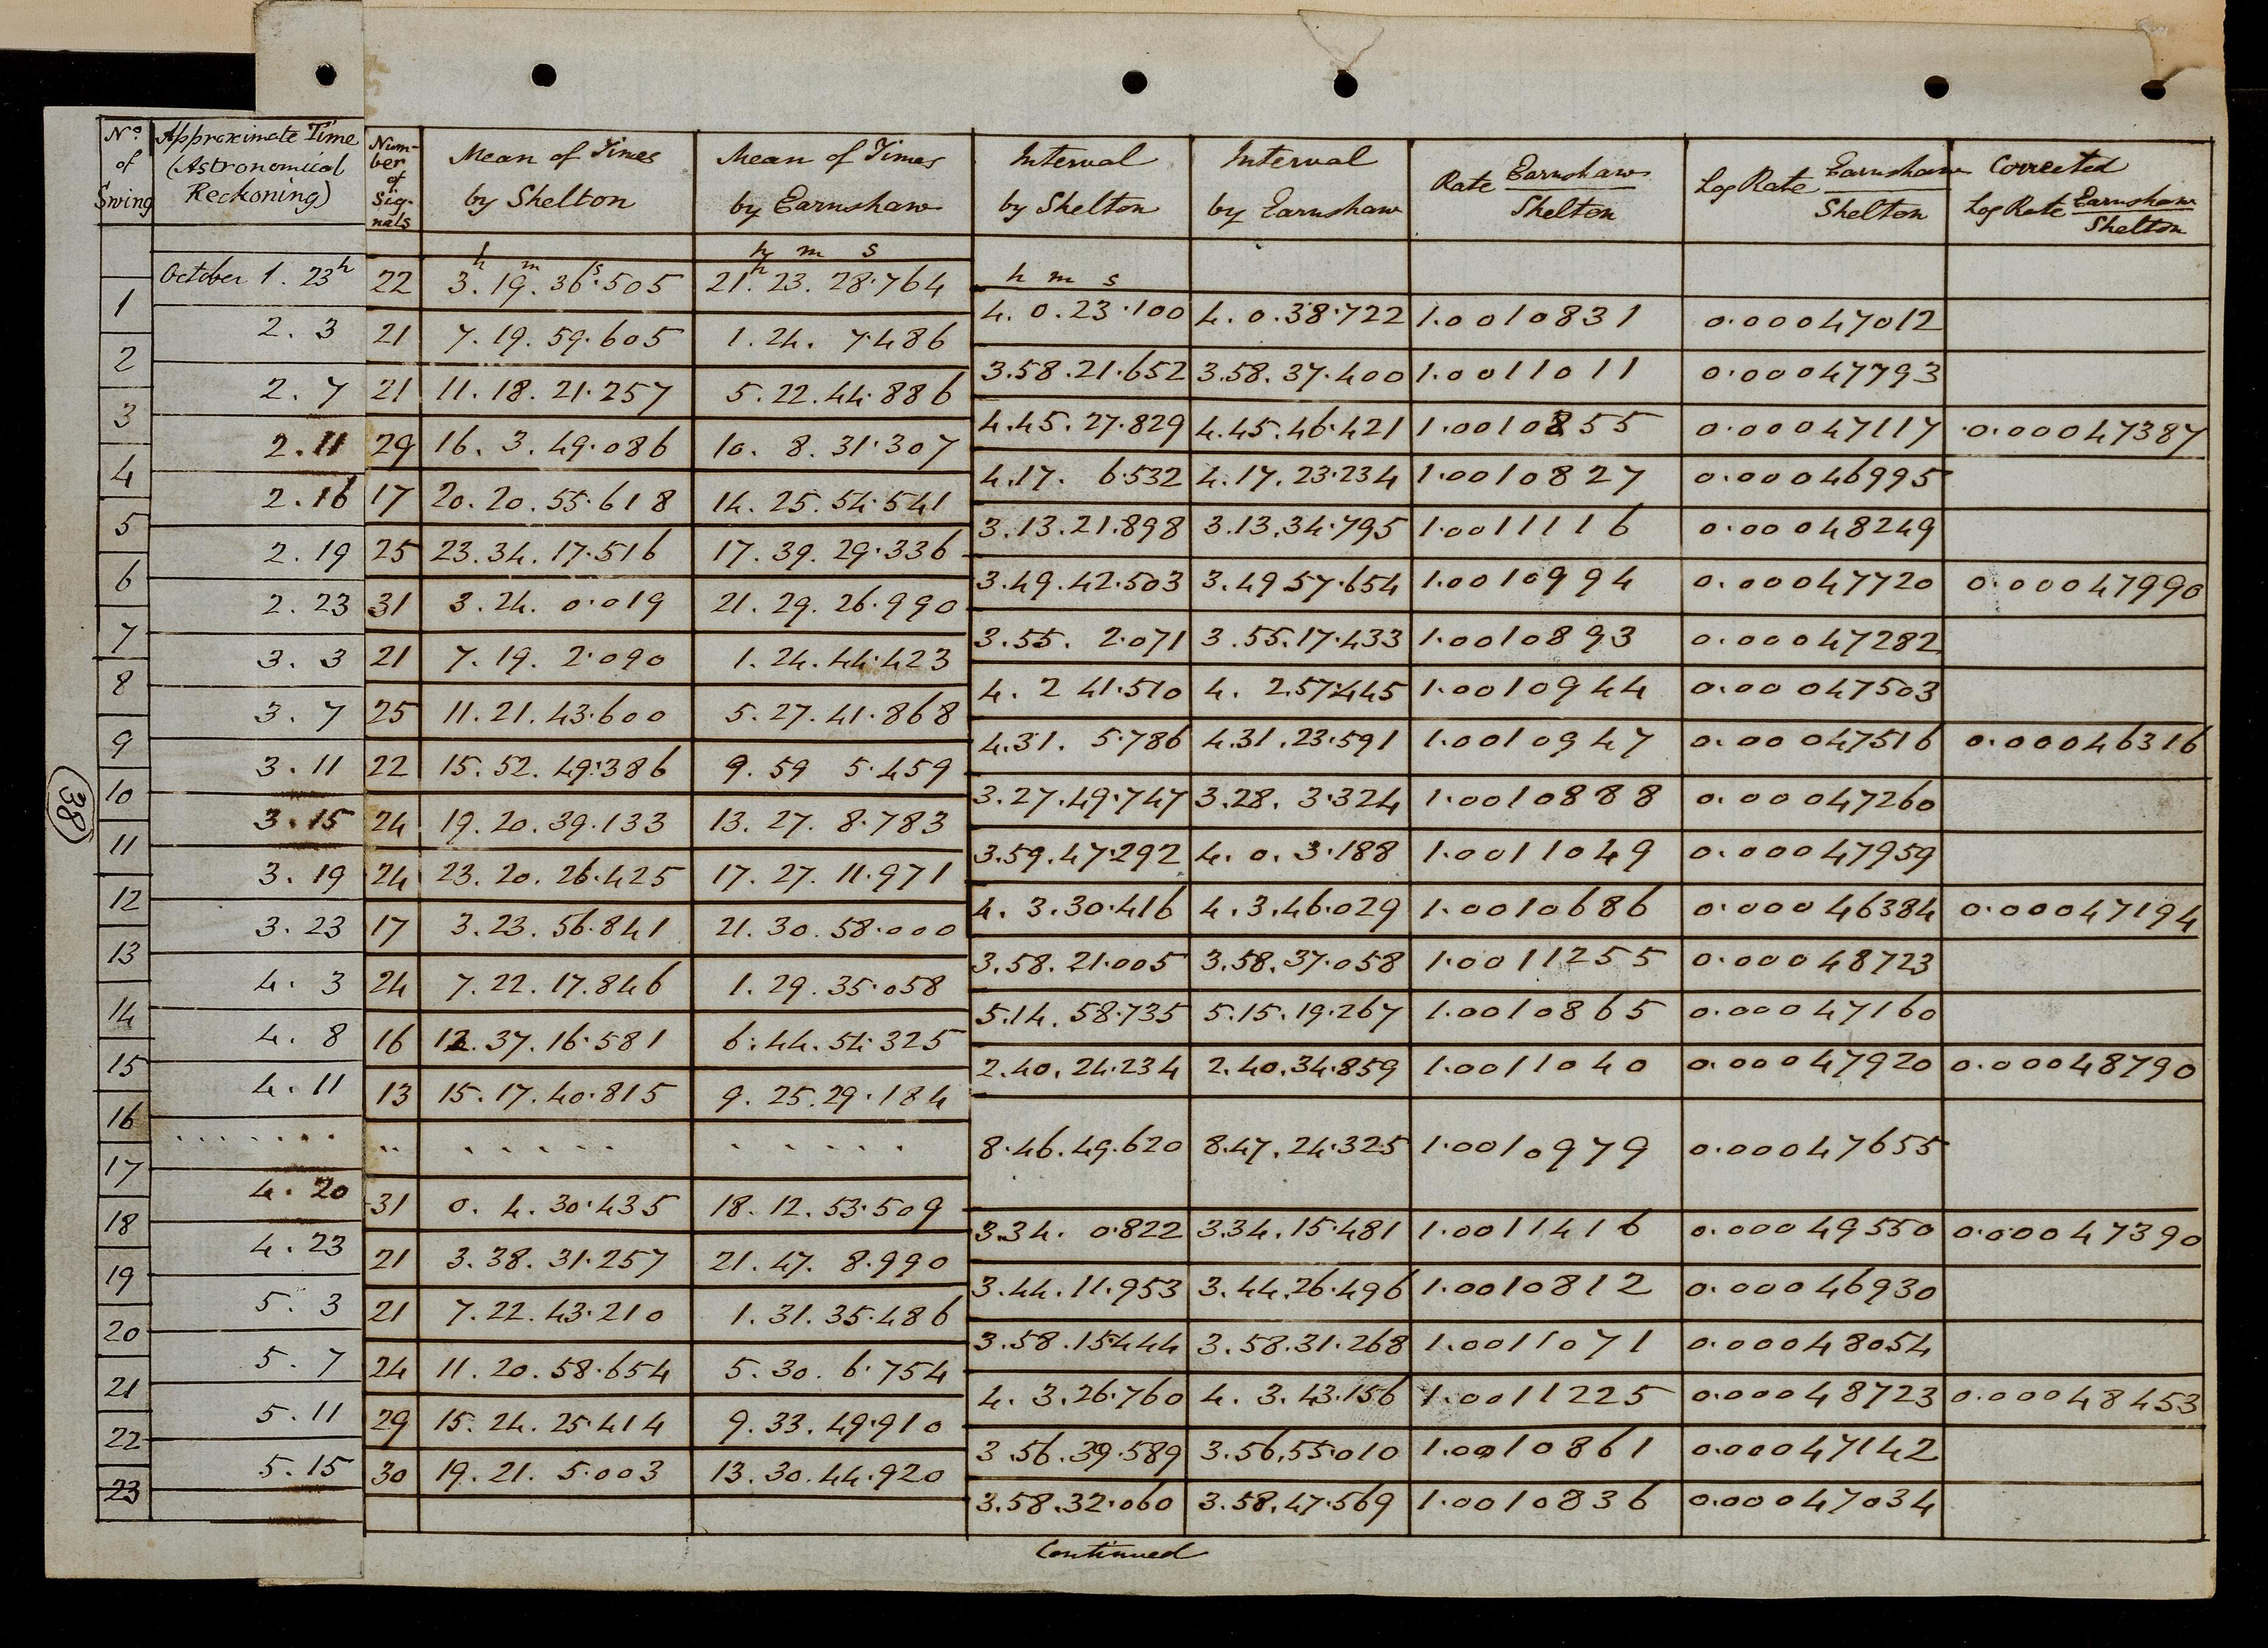 No. of Swing | Approximate Time (Astronomical Reckoning) | Number of Signals | Mean of Times by Shelton | Mean of Times by Earnshaw | Interval by Shelton | Interval by Earnshaw | Rate Earnshaw/Shelton | Log Rate Earnshaw/Shelton | Corrected Log Rate Earnshaw/Shelton
h m s
October 1. 23h | 22 | 3h. 19m. 36s.505 | 21h. 23. 28.764
h m s
1 | 4. 0. 23.100 | 4. 0. 38.722 | 1.0010831 | 0.00047012
2. 3 | 21 | 7. 19. 59.605 | 1. 24. 7.486
2 | 3. 58. 21.652 | 3. 58. 37.400 | 1.0011011 | 0.00047793
2. 7 | 21 | 11. 18. 21.257 | 5. 22. 44.886
3 | 4. 45. 27.829 | 4. 45. 46.421 | 1.0010855 | 0.00047117 | 0.00047387
2. 11 | 29 | 16. 3. 49.086 | 10. 8. 31.307
4 | 4. 17. 6.532 | 4. 17. 23.234 | 1.0010827 | 0.00046995
2. 16 | 17 | 20. 20. 55.618 | 14. 25. 54.541
5 | 3. 13. 21.898 | 3. 13. 34.795 | 1.0011116 | 0.00048249
2. 19 | 25 | 23. 34. 17.516 | 17. 39. 29.336
6 | 3. 49. 42.503 | 3. 49 57.654 | 1.0010994 | 0.00047720 | 0.00047990
2. 23 | 31 | 3. 24. 0.019 | 21. 29. 26.990
7 | 3. 55. 2.071 | 3. 55. 17.433 | 1.0010893 | 0.00047282
3. 3 | 21 | 7. 19. 2.090 | 1. 24. 44.423
8 | 4. 2 41.510 | 4. 2. 57.445 | 1.0010944 | 0.00047503
3. 7 | 25 | 11. 21. 43.600 | 5. 27. 41.868
9 | 4. 31. 5.786 | 4. 31. 23.591 | 1.0010947 | 0.00047516 | 0.00046316
3. 11 | 22 | 15. 52. 49.386 | 9. 59 5.459
10 | 3. 27. 49.747 | 3. 28. 3.324 | 1.0010888 | 0.00047260
3. 15 | 24 | 19. 20. 39.133 | 13. 27. 8.783
11 | 3. 59. 47.292 | 4. 0. 3.188 | 1.0011049 | 0.00047959
3. 19 | 24 | 23. 20. 26.425 | 17. 27. 11.971
12 | 4. 3. 30.416 | 4. 3. 46.029 | 1.0010686 | 0.00046384 | 0.00047194
3. 23 | 17 | 3. 23. 56.841 | 21. 30. 58.000
13 | 3. 58. 21.005 | 3. 58. 37.058 | 1.0011255 | 0.00048723
4. 3 | 24 | 7. 22. 17.846 | 1. 29. 35.058
14 | 5. 14. 58.735 | 5. 15. 19.267 | 1.0010865 | 0.00047160
4. 8 | 16 | 12. 37. 16.581 | 6. 44. 54.325
15 | 2. 40. 24.234 | 2. 40. 34.859 | 1.0011040 | 0.00047920 | 0.00048790
4. 11 | 13 | 15. 17. 40.815 | 9. 25. 29.184
16
....... | .. | ..... | ..... | 8. 46. 49.620 | 8. 47. 24.325 | 1.0010979 | 0.00047655
17
4. 20 | 31 | 0. 4. 30.435 | 18. 12. 53.509
18 | 3. 34. 0.822 | 3. 34. 15.481 | 1.0011416 | 0.00049550 | 0.00047390
4. 23 | 21 | 3. 38. 31.257 | 21. 47. 8.990
19 | 3. 44. 11.953 | 3. 44. 26.496 | 1.0010812 | 0.00046930
5. 3 | 21 | 7. 22. 43.210 | 1. 31. 35.486
20 | 3. 58. 15.444 | 3. 58. 31.268 | 1.0011071 | 0.00048054
5. 7 | 24 | 11. 20. 58.654 | 5. 30. 6.754
21 | 4. 3. 26.760 | 4. 3. 43.156 | 1.0011225 | 0.00048723 | 0.00048453
5. 11 | 29 | 15. 24. 25.414 | 9. 33. 49.910
22 | 3. 56. 39.589 | 3. 56. 55.010 | 1.0010861 | 0.00047142
5. 15 | 30 | 19. 21. 5.003 | 13. 30. 44.920
23 | 3. 58. 32.060 | 3. 58. 47.569 | 1.0010836 | 0.00047034
Continued
38